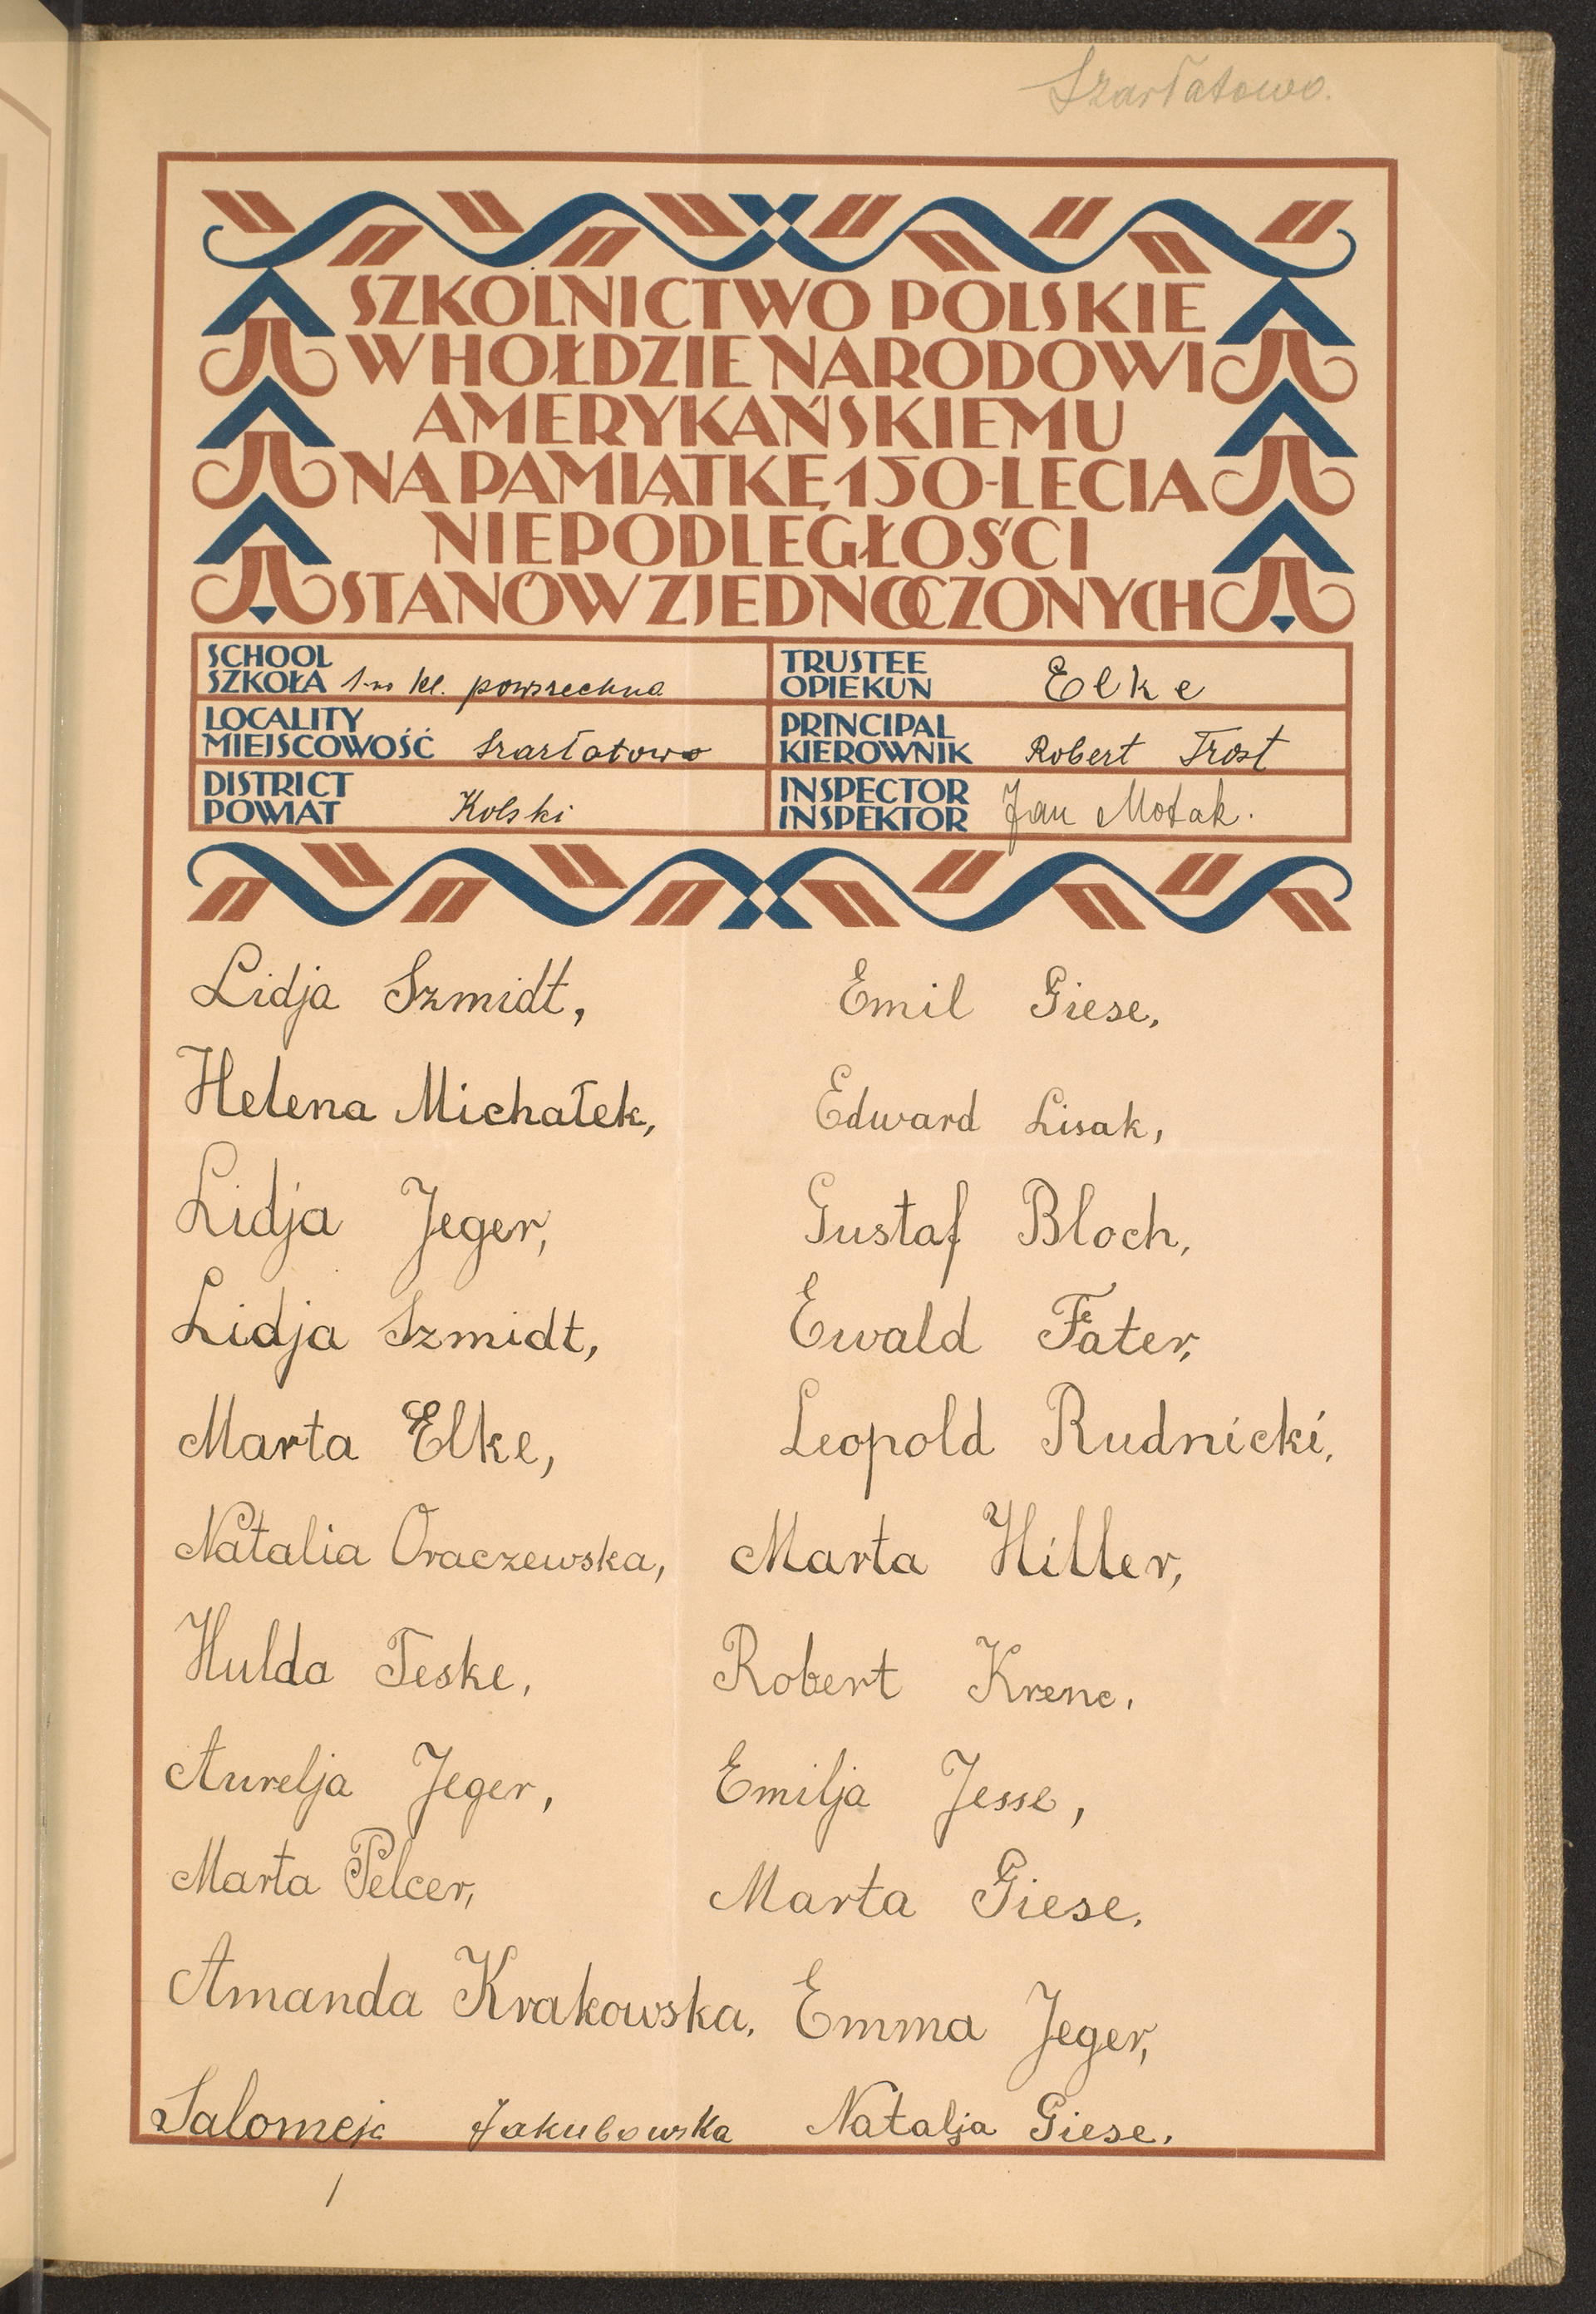 Szarłatowo.
SZKOLNICTWO POLSKIE
W HOŁDZIE NARODOWI
AMERYKAŃSKIEMU
NA PAMIĄTKĘ 150-LECIA
NIEPODLEGŁOŚCI
STANÓW ZJEDNOCZONYCH
SCHOOL
SZKOŁA 1-no kl. powszechna
LOCALITY
MIEJSCOWOŚĆ Szarłatowo
DISTRICT
POWIAT Kolski
TRUSTEE
OPIEKUN Elke
PRINCIPAL
KIEROWNIK Robert Trost
INSPECTOR
INSPEKTOR Jan Motak.
Lidja Szmidt,
Helena Michałek,
Lidja Jeger,
Lidja Szmidt,
Marta Elke,
Natalia Oraczewska,
Hulda Teske,
Aurelja Jeger,
Marta Pelcer,
Amanda Krakowska,
Salomeja Jakubowska
Emil Giese,
Edward Lisak,
Gustaf Bloch,
Ewald Fater,
Leopold Rudnicki,
Marta Hiller,
Robert Krenc,
Emilja Jesse,
Marta Giese,
Emma Jeger,
Natalja Giese,
1